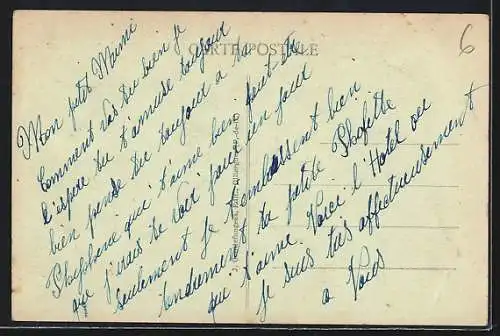 CARTE POSTALE
6
Mon petit Mimi
Comment vas tu bien je
l'espère tu t'amuse toujour
bien pense tu toujour a ta
Phophine qui t'aime bien peut etre
que j'irais te voir pour un jour
seulement je t'embrassent bien
tendrement ta petite Phofitte
qui t'aime. Voici l'Hotel ou
je suis tas affectueusement
a Vous